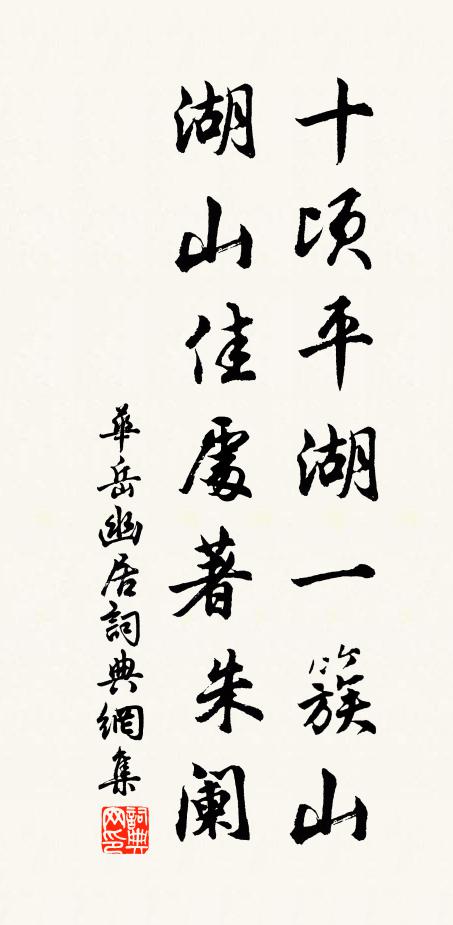 十顷平湖一簇山
湖山佳處著朱阑
華岳幽居詞典網集
詞典网印